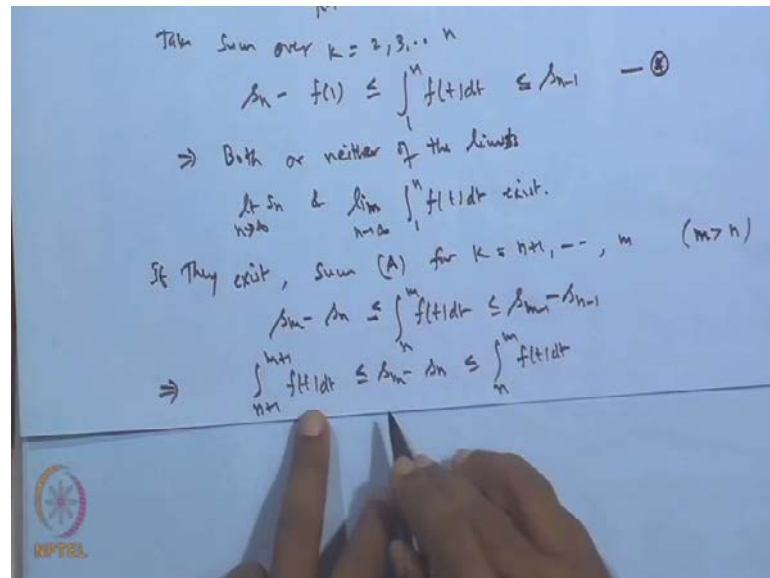 Take Sum over k = 2, 3, .. n
sₙ - f(1) ≤ ∫₁ⁿ f(t)dt ≤ sₙ₋₁ — ⊛
⇒ Both or neither of the limits
lt n→∞ sₙ & lim n→∞ ∫₁ⁿ f(t)dt exist.
If They exist, Sum (A) for k = n+1, ---, m (m > n)
sₘ - sₙ ≤ ∫ₙᵐ f(t)dt ≤ sₘ₋₁ - sₙ₋₁
⇒ ∫ₙ₊₁ᵐ⁺¹ f(t)dt ≤ sₘ - sₙ ≤ ∫ₙᵐ f(t)dt
NPTEL